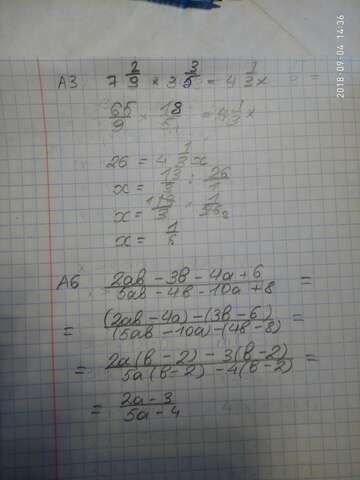 2018-09-04 14:36
А3 7 2/9 × 3 3/5 = 4 1/3 x
65/9 × 18/5 = 4 1/3 x
26 = 4 1/3 x
x = 13/3 : 26/1
x = 13/3 × 1/26
x = 1/6
А6 (2ab - 3b - 4a + 6)/(5ab - 4b - 10a + 8) =
= ((2ab - 4a) - (3b - 6))/((5ab - 10a) - (4b - 8)) =
= (2a(b - 2) - 3(b - 2))/(5a(b - 2) - 4(b - 2)) =
= (2a - 3)/(5a - 4)